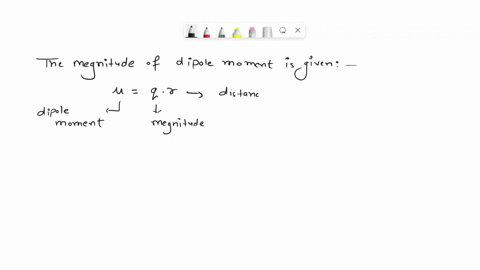 The megnitude of dipole moment is given: —
μ = q . r → distanc
dipole moment
megnitude